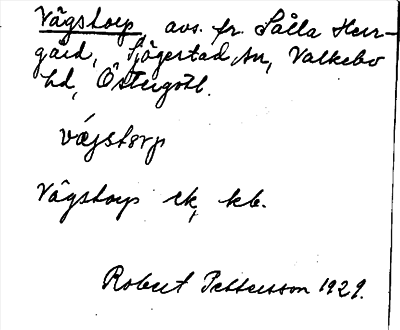 Vågstorp, avs. fr. Sålla Herr-
gård, Sjögestad sn, Valkebo
hd, Östergötl.
vǻjstørp
Vågstorp ek, kb.
Robert Pettersson 1929.